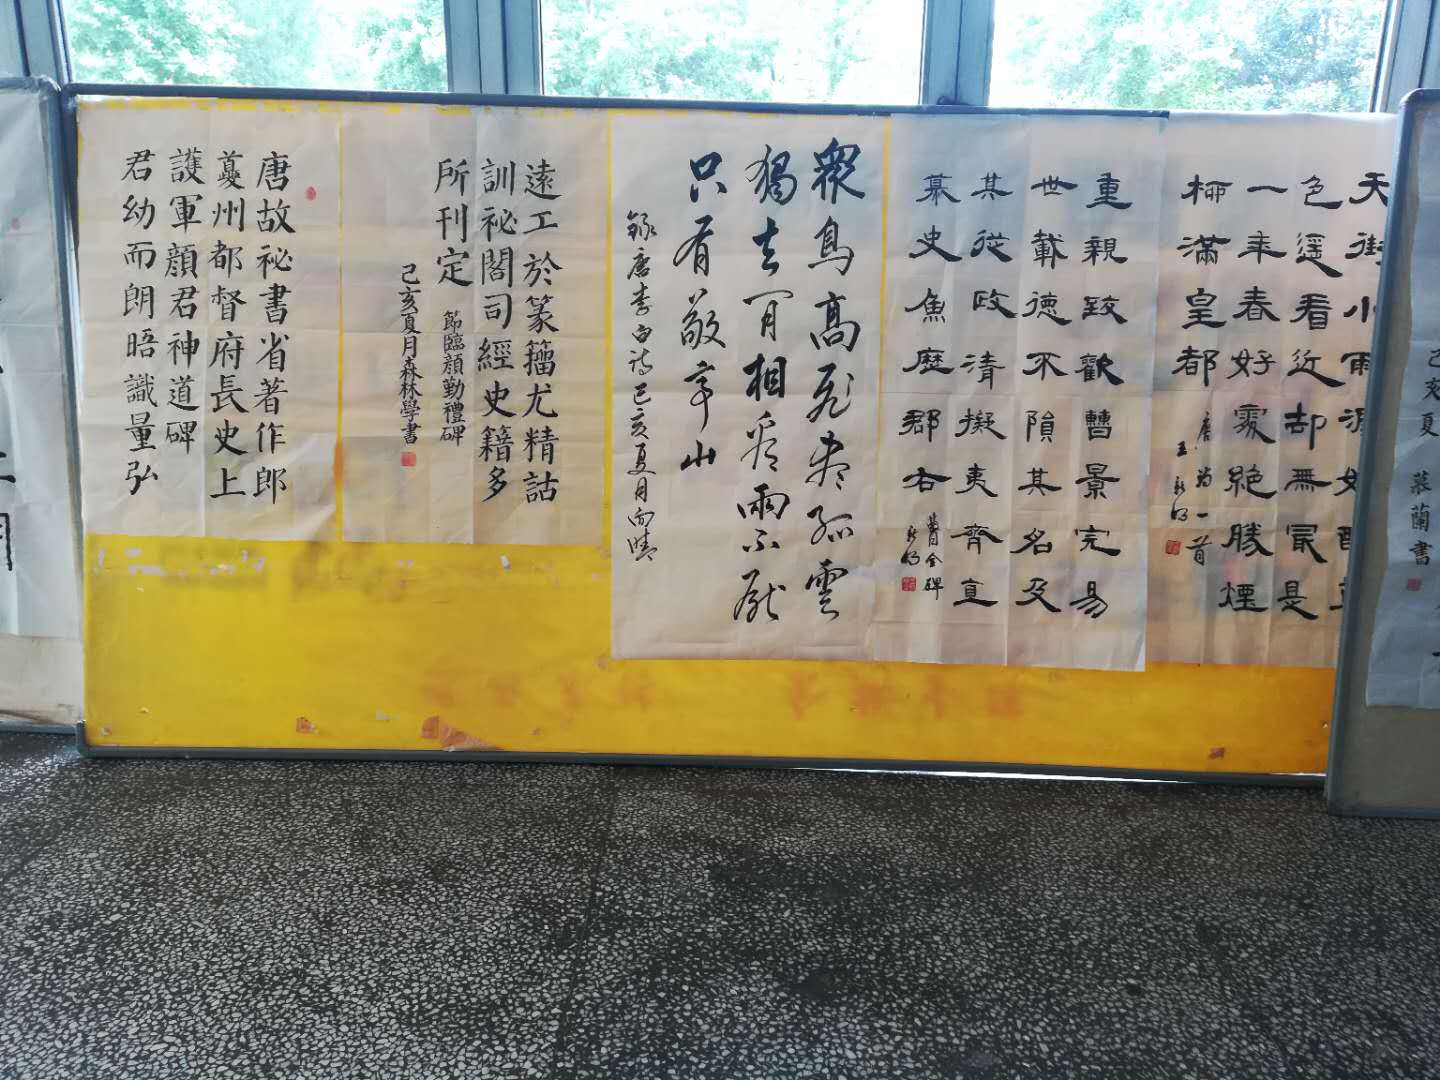 唐故祕書省著作郎
夔州都督府長史上
護軍顔君神道碑
君幼而朗晤識量弘
遠工於篆籀尤精詁
訓祕閣司經史籍多
所刊定
節臨顔勤禮碑
己亥夏月森林學書
衆鳥高飛盡孤雲
獨去閒相看兩不厭
只有敬亭山
錄唐李白詩己亥夏月向晴
重親致歡曹景完易
世載德不隕其名及
其從政清擬夷齊直
慕史魚歷郡右
曹全碑
天街小雨潤如酥草
色遥看近却無最是
一年春好處絶勝煙
柳滿皇都
己亥夏
蘭書